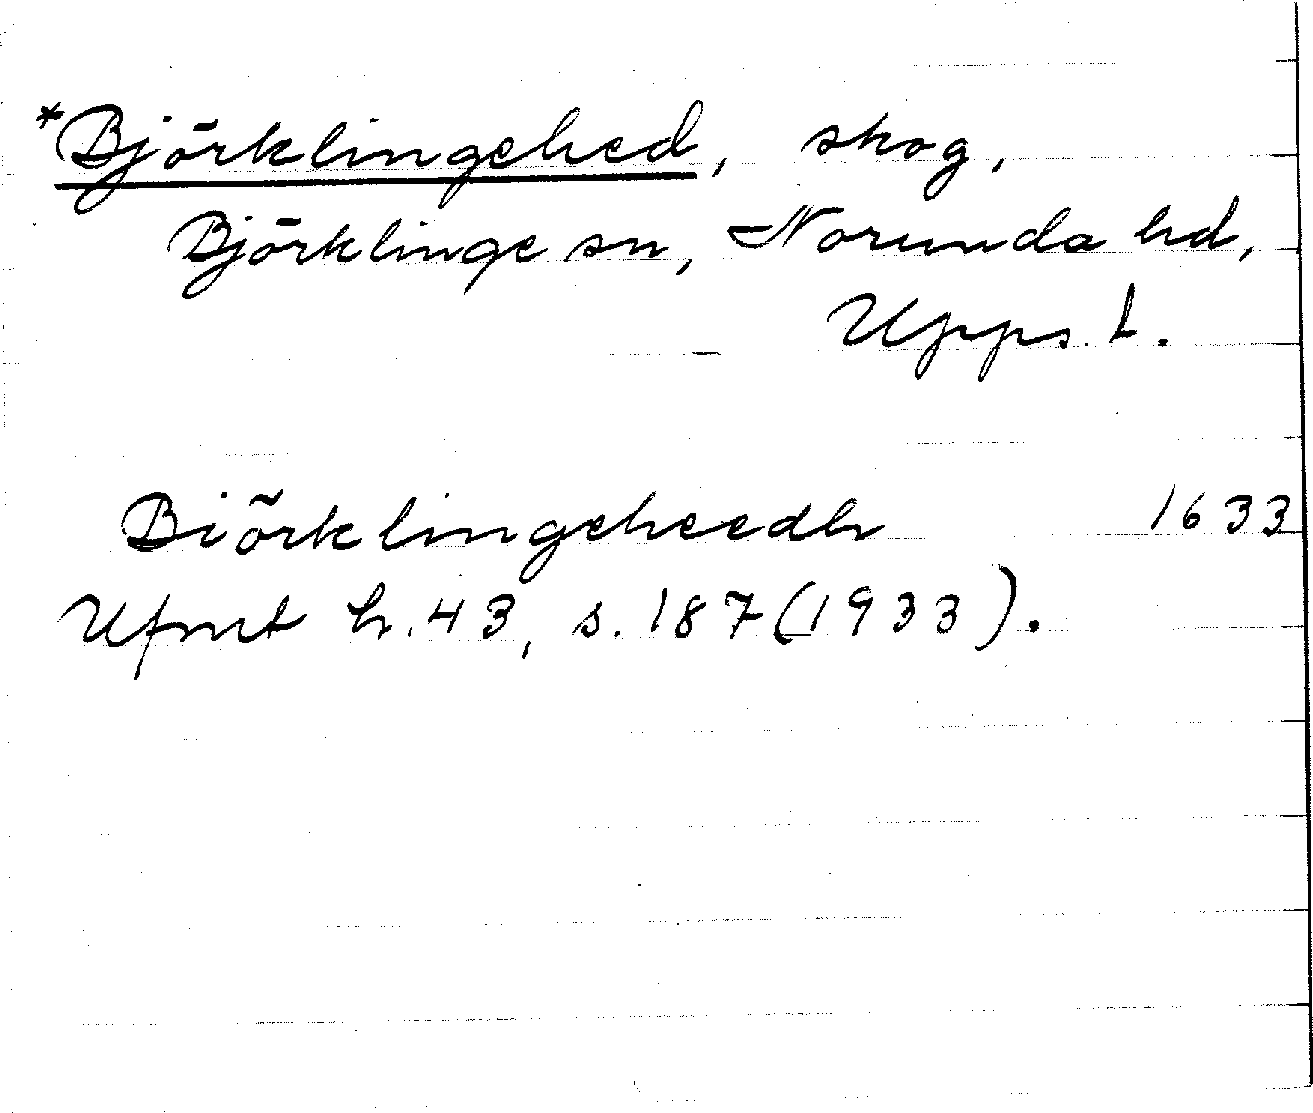 *Björklingehed, skog,
Björklinge sn, Norunda hd,
Upps. l.
Biörklingeheedh 1633
Ufmt h. 43, s. 187 (1933).